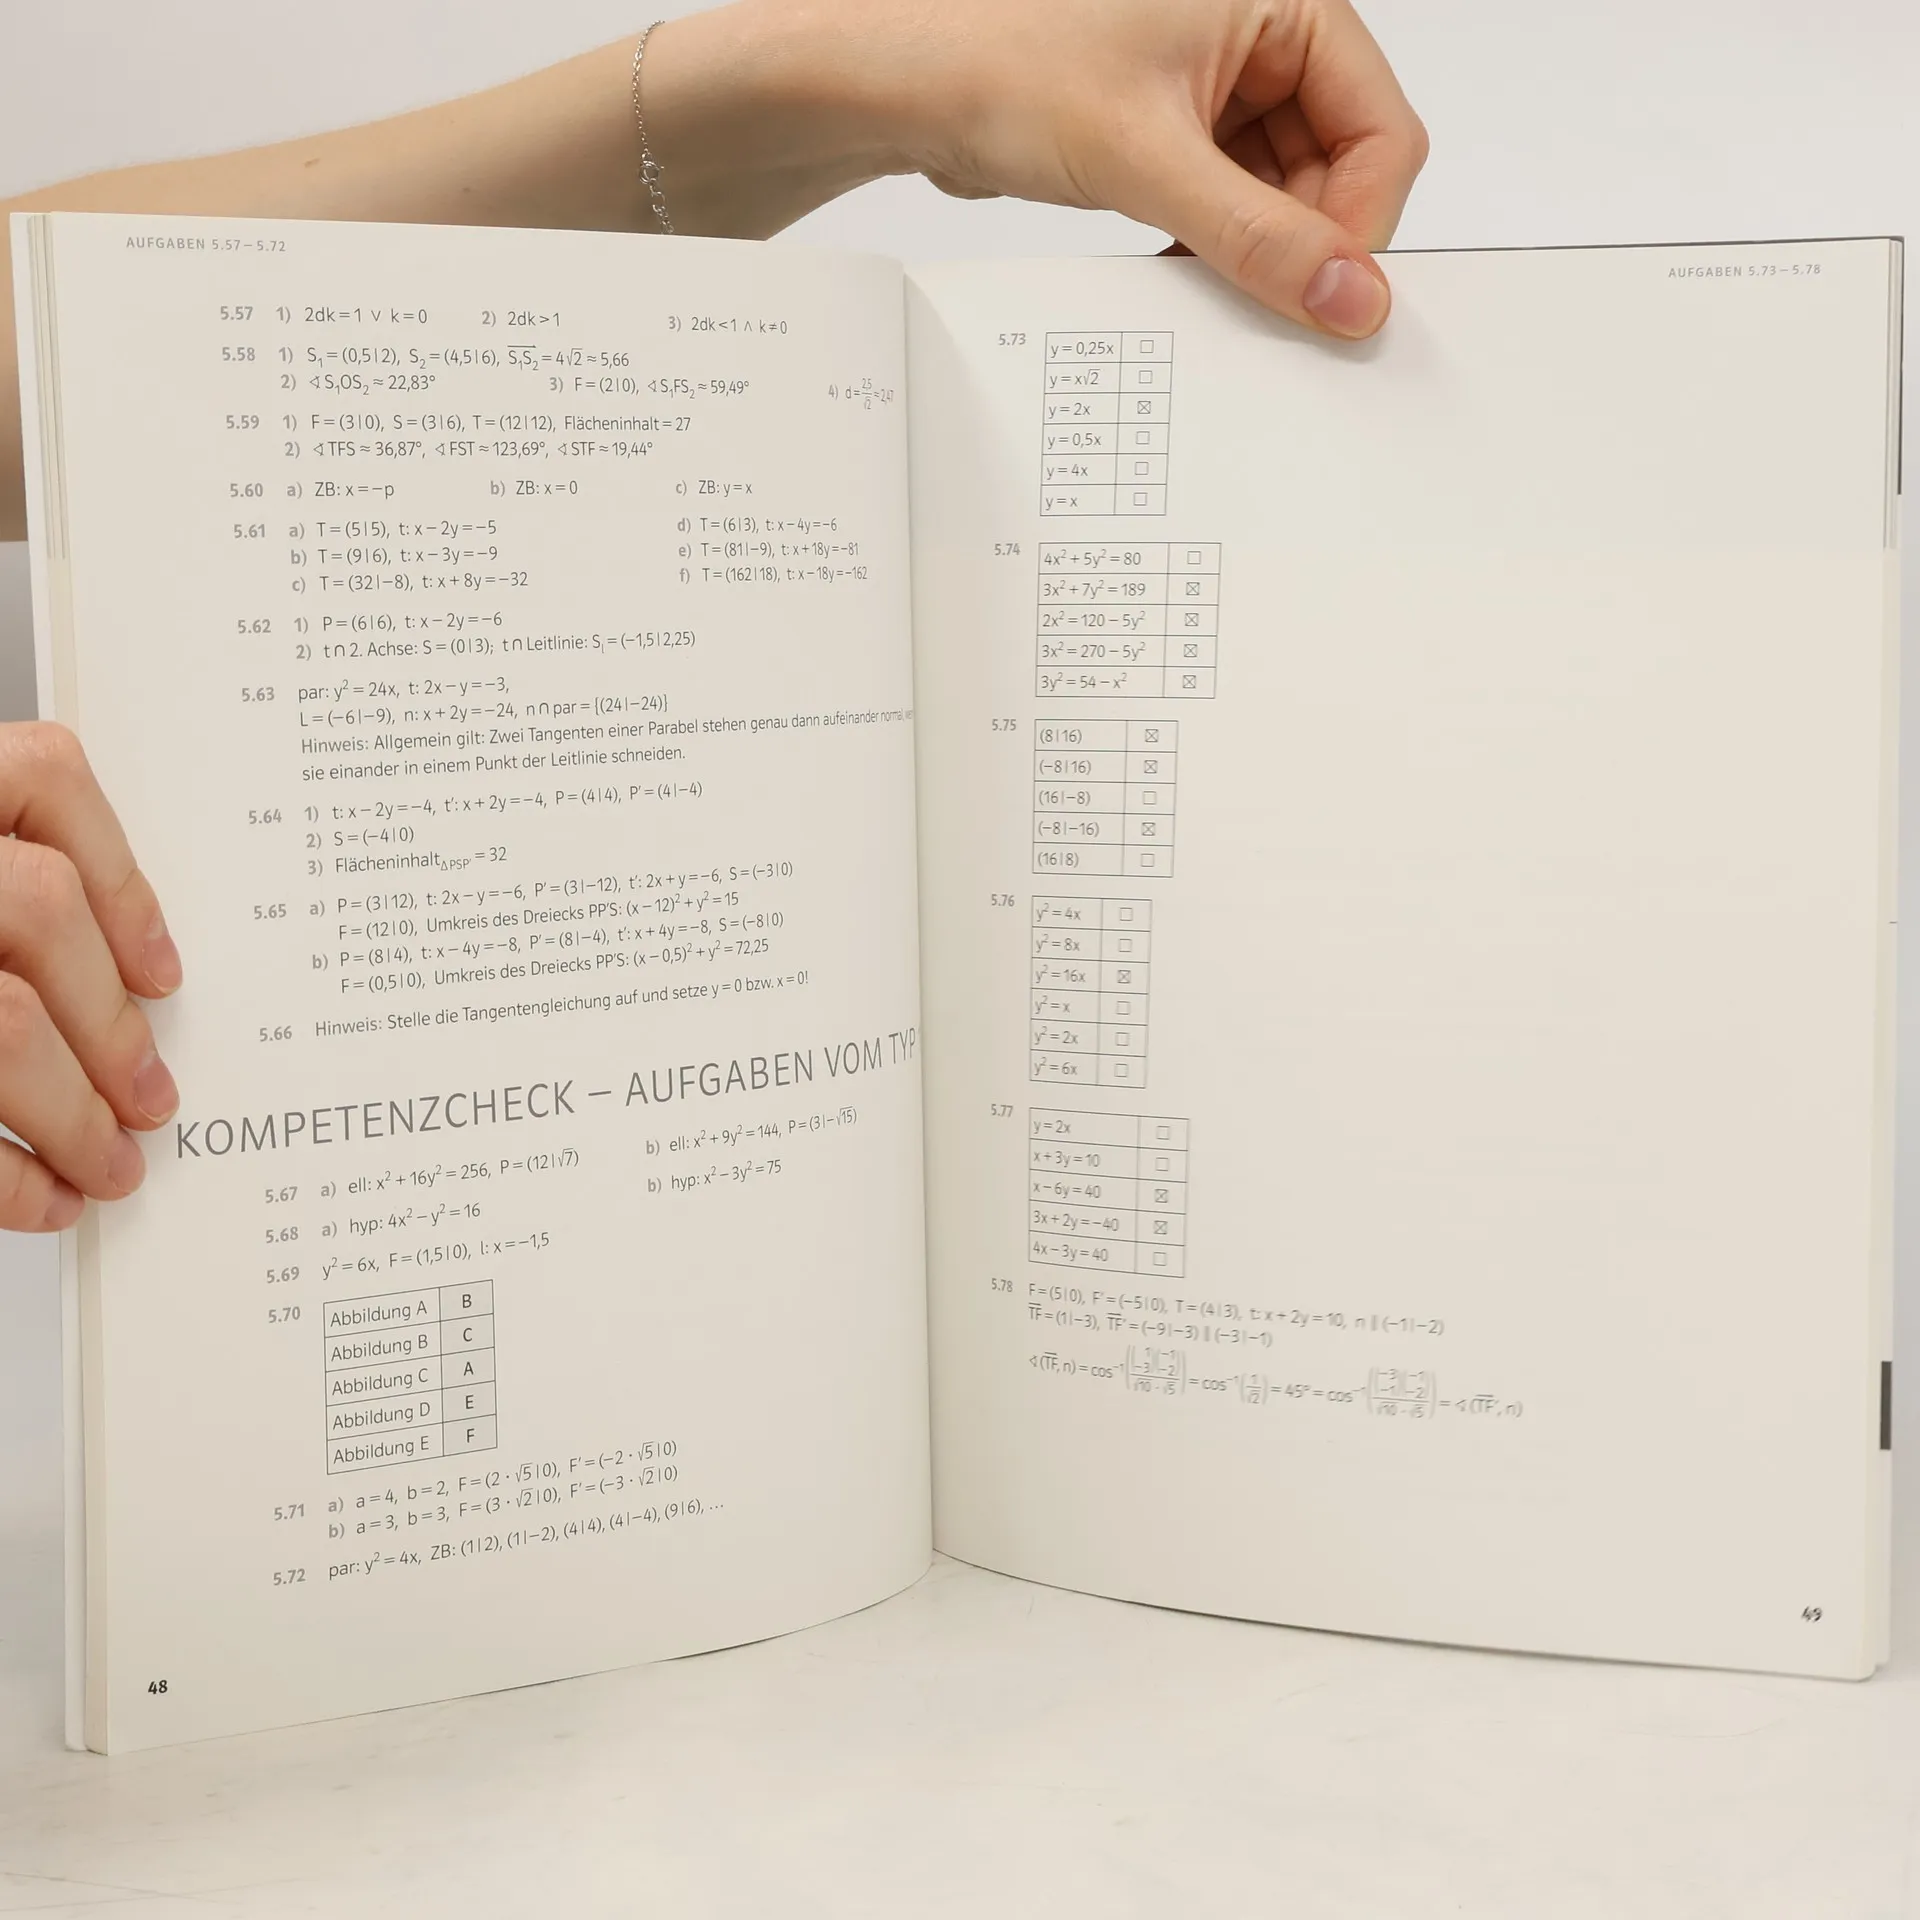 AUFGABEN 5.57 – 5.72
5.57 1) 2dk = 1 ∨ k = 0 2) 2dk > 1 3) 2dk < 1 ∧ k ≠ 0
5.58 1) S₁ = (0,5 | 2), S₂ = (4,5 | 6), S₁S₂ = 4√2 ≈ 5,66
2) ∢ S₁OS₂ ≈ 22,83° 3) F = (2 | 0), ∢ S₁FS₂ ≈ 59,49° 4) d =
5.59 1) F = (3 | 0), S = (3 | 6), T = (12 | 12), Flächeninhalt = 27
2) ∢ TFS ≈ 36,87°, ∢ FST ≈ 123,69°, ∢ STF ≈ 19,44°
5.60 a) ZB: x = −p b) ZB: x = 0 c) ZB: y = x
5.61 a) T = (5 | 5), t: x − 2y = −5 d) T = (6 | 3), t: x − 4y = −6
b) T = (9 | 6), t: x − 3y = −9 e) T = (81 | −9), t: x + 18y = −81
c) T = (32 | −8), t: x + 8y = −32 f) T = (162 | 18), t: x − 18y = −162
5.62 1) P = (6 | 6), t: x − 2y = −6
2) t ∩ 2. Achse: S = (0 | 3); t ∩ Leitlinie: Sₗ = (−1,5 | 2,25)
5.63 par: y² = 24x, t: 2x − y = −3,
L = (−6 | −9), n: x + 2y = −24, n ∩ par = {(24 | −24)}
Hinweis: Allgemein gilt: Zwei Tangenten einer Parabel stehen genau dann aufeinander normal,
sie einander in einem Punkt der Leitlinie schneiden.
5.64 1) t: x − 2y = −4, t′: x + 2y = −4, P = (4 | 4), P′ = (4 | −4)
2) S = (−4 | 0)
3) Flächeninhalt Δ PSP′ = 32
5.65 a) P = (3 | 12), t: 2x − y = −6, P′ = (3 | −12), t′: 2x + y = −6, S = (−3 | 0)
F = (12 | 0), Umkreis des Dreiecks PP′S: (x − 12)² + y² = 15
b) P = (8 | 4), t: x − 4y = −8, P′ = (8 | −4), t′: x + 4y = −8, S = (−8 | 0)
F = (0,5 | 0), Umkreis des Dreiecks PP′S: (x − 0,5)² + y² = 72,25
5.66 Hinweis: Stelle die Tangentengleichung auf und setze y = 0 bzw. x = 0!
KOMPETENZCHECK – AUFGABEN VOM TYP
5.67 a) ell: x² + 16y² = 256, P = (12 | √7) b) ell: x² + 9y² = 144, P = (3 | −√15)
5.68 a) hyp: 4x² − y² = 16 b) hyp: x² − 3y² = 75
5.69 y² = 6x, F = (1,5 | 0), l: x = −1,5
5.70 Abbildung A B
Abbildung B C
Abbildung C A
Abbildung D E
Abbildung E F
5.71 a) a = 4, b = 2, F = (2 · √5 | 0), F′ = (−2 · √5 | 0)
b) a = 3, b = 3, F = (3 · √2 | 0), F′ = (−3 · √2 | 0)
5.72 par: y² = 4x, ZB: (1 | 2), (1 | −2), (4 | 4), (4 | −4), (9 | 6), …
48
AUFGABEN 5.73 – 5.78
5.73 y = 0,25x ☐
y = x√2 ☐
y = 2x ☒
y = 0,5x ☐
y = 4x ☐
y = x ☐
5.74 4x² + 5y² = 80 ☐
3x² + 7y² = 189 ☒
2x² = 120 − 5y² ☒
3x² = 270 − 5y² ☒
3y² = 54 − x² ☒
5.75 (8 | 16) ☒
(−8 | 16) ☒
(16 | −8) ☐
(−8 | −16) ☒
(16 | 8) ☐
5.76 y² = 4x ☐
y² = 8x ☐
y² = 16x ☒
y² = x ☐
y² = 2x ☐
y² = 6x ☐
5.77 y = 2x ☐
x + 3y = 10 ☐
x − 6y = 40 ☒
3x + 2y = −40 ☒
4x − 3y = 40 ☐
5.78 F = (5 | 0), F′ = (−5 | 0), T = (4 | 3), t: x + 2y = 10, n ∥ (−1 | −2)
TF = (1 | −3), TF′ = (−9 | −3) ∥ (−3 | −1)
∢ (TF, n) = cos⁻¹((1 | −3) · (−1 | −2) / √10 · √5) = cos⁻¹(1/√2) = 45° = cos⁻¹((−3 | −1) · (−1 | −2) / √10 · √5) = ∢ (TF′, n)
49